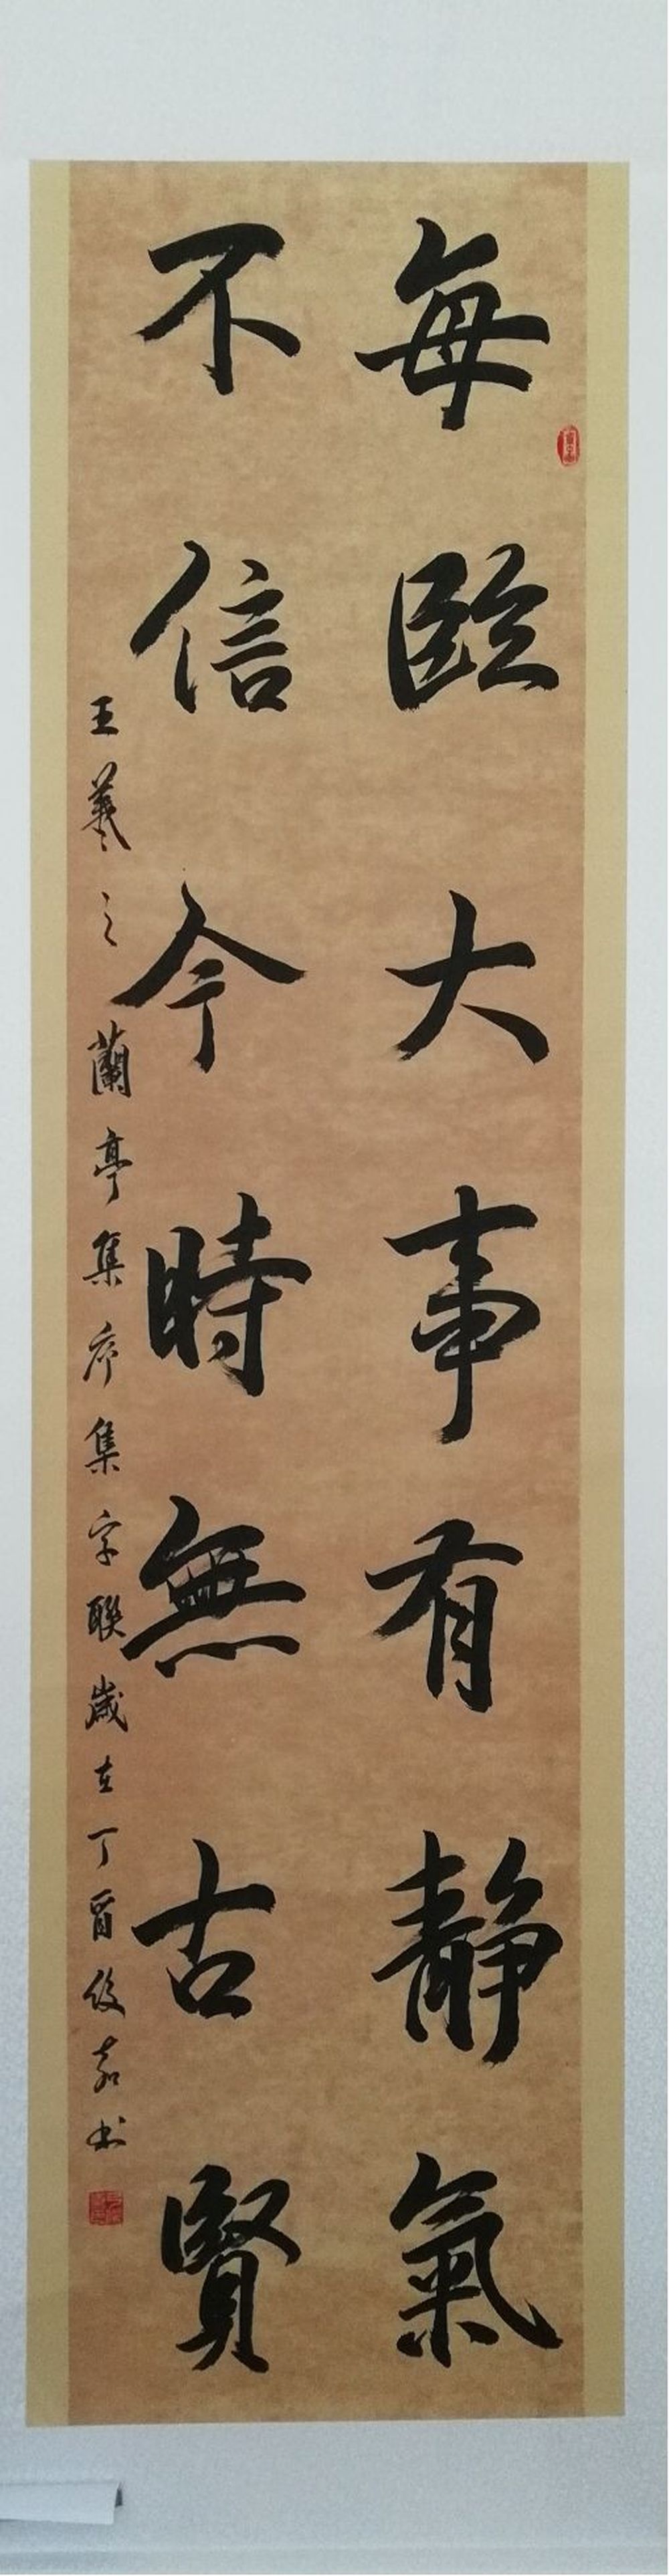 每臨大事有静氣
不信今時無古賢
王羲之蘭亭集序集字聯歲在丁酉俊嘉书